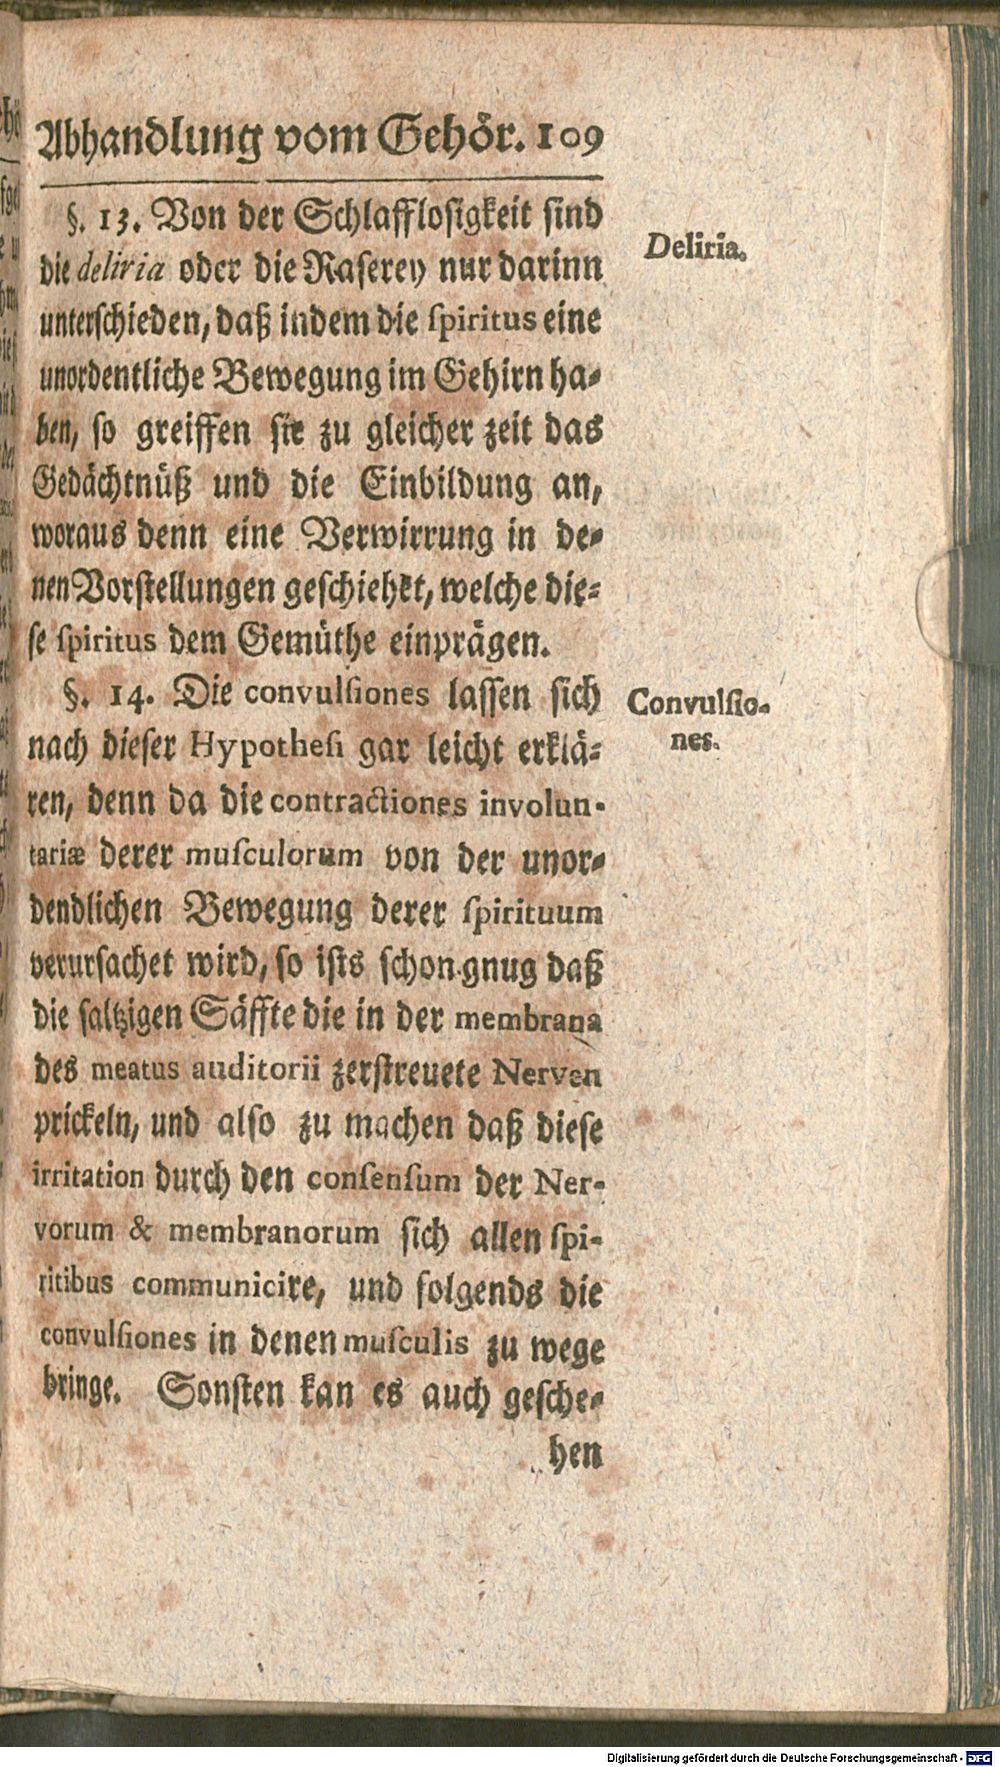 Abhandlung vom Gehör. 109
§. 13. Von der Schlafflosigkeit sind
die deliria oder die Raserey nur darinn
unterschieden, daß indem die spiritus eine
unordentliche Bewegung im Gehirn ha-
ben, so greiffen sie zu gleicher zeit das
Gedächtnüß und die Einbildung an,
woraus denn eine Verwirrung in de-
nen Vorstellungen geschiehet, welche die-
se spiritus dem Gemüthe einprägen.
Deliria.
§. 14. Die convulsiones lassen sich
nach dieser Hypothesi gar leicht erklä-
ren, denn da die contractiones involun-
tariæ derer musculorum von der unor-
dendlichen Bewegung derer spirituum
verursachet wird, so ists schon gnug daß
die saltzigen Säffte die in der membrana
des meatus auditorii zerstreuete Nerven
prickeln, und also zu machen daß diese
irritation durch den consensum der Ner-
vorum & membranorum sich allen spi-
ritibus communicire, und folgends die
convulsiones in denen musculis zu wege
bringe. Sonsten kan es auch gesche-
hen
Convulsio-
nes.
Digitalisierung gefördert durch die Deutsche Forschungsgemeinschaft - DFG